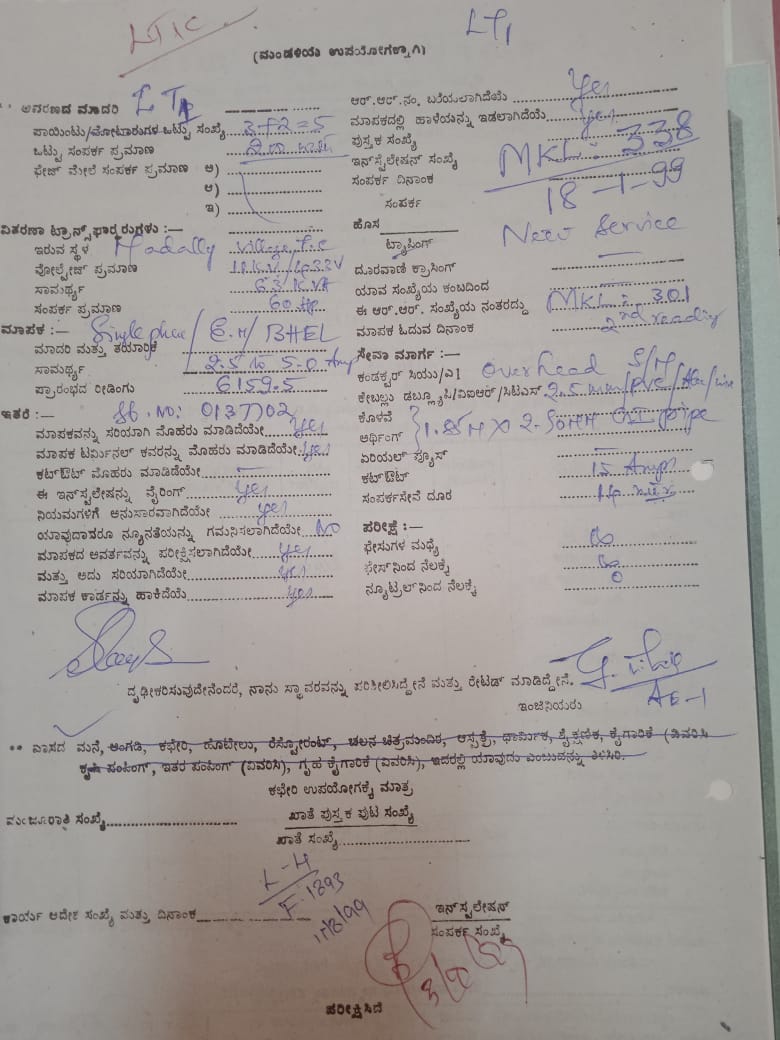 LT1C
LT1
(ಮಂಡಳಿಯ ಉಪಯೋಗಕ್ಕಾಗಿ)
ಆವರಣದ ಮಾದರಿ
ಪಾಯಿಂಟು/ಮೋಟಾರುಗಳ ಒಟ್ಟು ಸಂಖ್ಯೆ 3+2=5
ಒಟ್ಟು ಸಂಪರ್ಕ ಪ್ರಮಾಣ
ಫೇಜ್ ಮೇಲೆ ಸಂಪರ್ಕ ಪ್ರಮಾಣ ಅ)
ಆ)
ಇ)
ವಿತರಣಾ ಟ್ರಾನ್ಸ್‌ಫಾರ್ಮರುಗಳು :—
ಇರುವ ಸ್ಥಳ Madally Village T.C
ವೋಲ್ಟೇಜ್ ಪ್ರಮಾಣ
ಸಾಮರ್ಥ್ಯ 63 KVA
ಸಂಪರ್ಕ ಪ್ರಮಾಣ 60 Hp
ಮಾಪಕ :— Single phase / E.M / BHEL
ಮಾದರಿ ಮತ್ತು ತಯಾರಿಕೆ
ಸಾಮರ್ಥ್ಯ 2.5 to 5.0 Amp
ಪ್ರಾರಂಭದ ರೀಡಿಂಗು 6159.5
ಇತರೆ :— Sl. NO: 0137702
ಮಾಪಕವನ್ನು ಸರಿಯಾಗಿ ಮೊಹರು ಮಾಡಿದೆಯೇ yes
ಮಾಪಕ ಟರ್ಮಿನಲ್ ಕವರನ್ನು ಮೊಹರು ಮಾಡಿದೆಯೇ yes
ಕಟ್‌ಔಟ್ ಮೊಹರು ಮಾಡಿಡೆಯೇ —
ಈ ಇನ್‌ಸ್ಟಲೇಷನ್ನು ವೈರಿಂಗ್ yes
ನಿಯಮಗಳಿಗೆ ಅನುಸಾರವಾಗಿದೆಯೇ yes
ಯಾವುದಾದರೂ ನ್ಯೂನತೆಯನ್ನು ಗಮನಿಸಲಾಗಿದೆಯೇ NO
ಮಾಪಕದ ಆವರ್ತವನ್ನು ಪರೀಕ್ಷಿಸಲಾಗಿದೆಯೇ yes
ಮತ್ತು ಅದು ಸರಿಯಾಗಿದೆಯೇ yes
ಮಾಪಕ ಕಾರ್ಡನ್ನು ಹಾಕಿದೆಯೆ yes
ಆರ್.ಆರ್.ನಂ. ಬರೆಯಲಾಗಿದೆಯೆ Yes
ಮಾಪಕದಲ್ಲಿ ಹಾಳೆಯನ್ನು ಇಡಲಾಗಿದೆಯೆ yes
ಪುಸ್ತಕ ಸಂಖ್ಯೆ
ಇನ್‌ಸ್ಟಲೇಷನ್ ಸಂಖ್ಯೆ MKL: 338
ಸಂಪರ್ಕ ದಿನಾಂಕ 18-1-99
ಸಂಪರ್ಕ
ಹೊಸ New Service
ಟ್ಯಾಪಿಂಗ್
ದೂರವಾಣಿ ಕ್ರಾಸಿಂಗ್ —
ಯಾವ ಸಂಖ್ಯೆಯ ಕಂಬದಿಂದ —
ಈ ಆರ್.ಆರ್. ಸಂಖ್ಯೆಯ ನಂತರದ್ದು MKL: 301
ಮಾಪಕ ಓದುವ ದಿನಾಂಕ 2nd reading
ಸೇವಾ ಮಾರ್ಗ :—
ಕಂಡಕ್ಟರ್ ಸಿಯು/ಎ| Overhead S/M
ಕೇಬಲ್ಲು ಡಬ್ಲ್ಯೂಪಿ/ವಿಐಆರ್/ಸಿಟಿಎಸ್ 2.5mm/pvc
ಕೊಳವೆ
ಅರ್ಥಿಂಗ್ pipe
ಏರಿಯಲ್ ಫ್ಯೂಸ್ —
ಕಟ್‌ಔಟ್ 15 Amps
ಸಂಪರ್ಕಸೇವೆ ದೂರ
ಪರೀಕ್ಷೆ :—
ಫೇಸುಗಳ ಮಧ್ಯೆ
ಫೇಸ್‌ನಿಂದ ನೆಲಕ್ಕೆ
ನ್ಯೂಟ್ರಲ್‌ನಿಂದ ನೆಲಕ್ಕೆ 0
ದೃಢೀಕರಿಸುವುದೇನೆಂದರೆ, ನಾನು ಸ್ಥಾವರವನ್ನು ಪರಿಶೀಲಿಸಿದ್ದೇನೆ ಮತ್ತು ರೇಟೆಡ್ ಮಾಡಿದ್ದೇನೆ.
AE-1
ಇಂಜಿನಿಯರು
** ವಾಸದ ಮನೆ, ಅಂಗಡಿ, ಕಛೇರಿ, ಹೊಟೇಲು, ರೆಸ್ಟೋರೆಂಟ್, ಚಲನ ಚಿತ್ರಮಂದಿರ, ಆಸ್ಪತ್ರೆ, ಧಾರ್ಮಿಕ, ಶೈಕ್ಷಣಿಕ, ಕೈಗಾರಿಕೆ (ವಿವರಿಸಿ
ಕೃಷಿ ಪಂಪಿಂಗ್, ಇತರ ಪಂಪಿಂಗ್ (ವಿವರಿಸಿ), ಗೃಹ ಕೈಗಾರಿಕೆ (ವಿವರಿಸಿ), ಇದರಲ್ಲಿ ಯಾವುದು ಎಂಬುದನ್ನು ತಿಳಿಸಿರಿ.
ಕಛೇರಿ ಉಪಯೋಗಕ್ಕೆ ಮಾತ್ರ
ಮಂಜೂರಾತಿ ಸಂಖ್ಯೆ
ಖಾತೆ ಪುಸ್ತಕ ಪುಟ ಸಂಖ್ಯೆ
ಖಾತೆ ಸಂಖ್ಯೆ
L-H
F. 1893
ಕಾರ್ಯ ಆದೇಶ ಸಂಖ್ಯೆ ಮತ್ತು ದಿನಾಂಕ
ಇನ್‌ಸ್ಟಲೇಷನ್
ಸಂಪರ್ಕ ಸಂಖ್ಯೆ
ಪರೀಕ್ಷಿಸಿದೆ